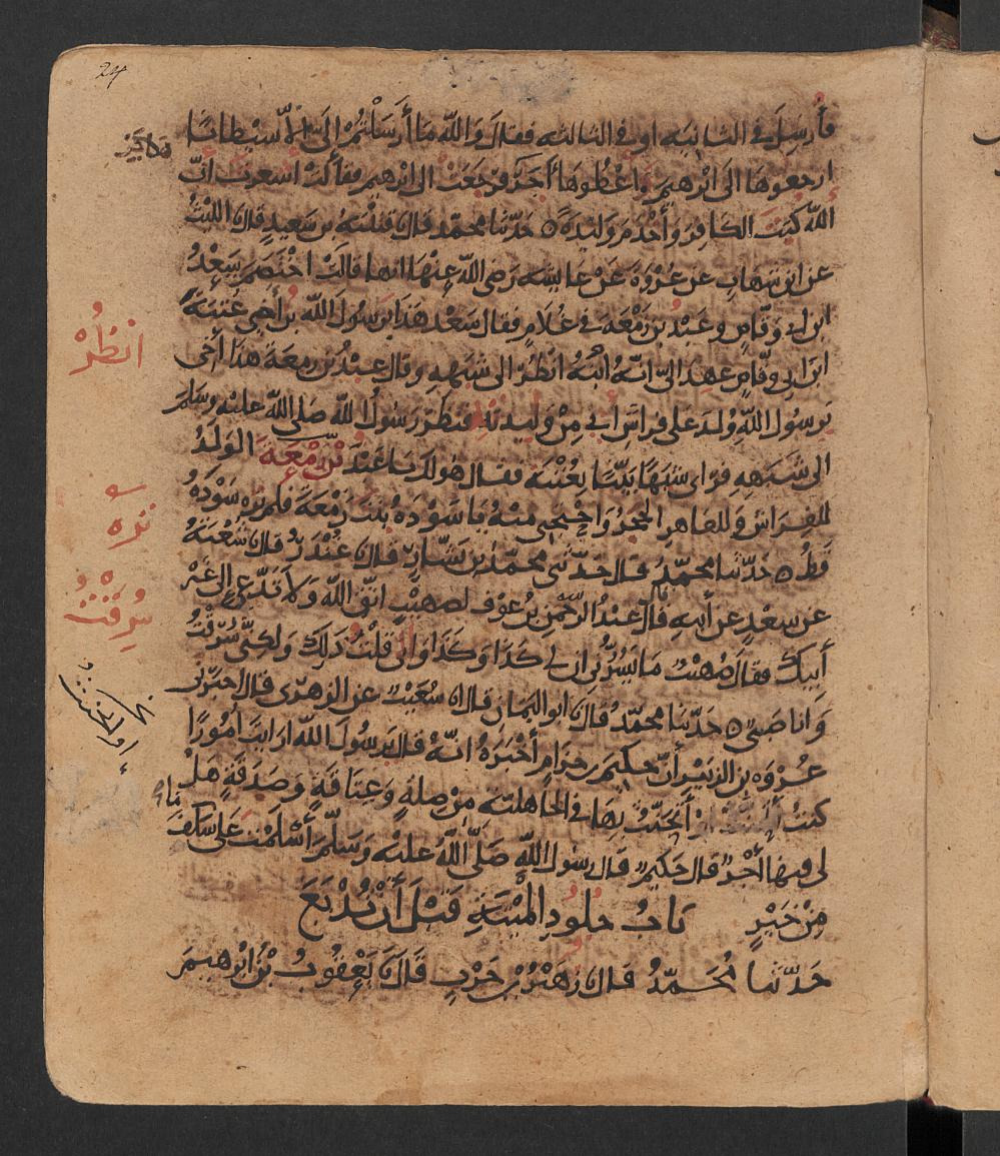 24
فأرسل في الثانيه او في الثالثه فقال والله ما أرسلتم إلي الا شيطانا
ارجعوها الى ابرهيم واعطوها آجر فرجعت الى ابرهيم فقالت اشعرت ان
الله كبت الكافر وأخدم وليدة ۝ حدثنا محمد قال قتيبة بن سعيد قال الليث
عن ابن شهاب عن عروة عن عايشه رضي الله عنها انها قالت اختصم سعد
ابن ابي وقاص وعبد بن زمعه في غلام فقال سعد هذا يرسول الله بن أخي عتبة
ابن ابي وقاص عهد الي انه ابنه انظر الى شبهه وقال عبد بن زمعة هذا أخي
يرسول الله ولد على فراش أبي من وليدته فنظر رسول الله صلى الله عليه وسلم
الى شبهه فراى شبها بينا بعتبة فقال هو لك يا عبد بن زمعة الولد
للفراش وللعاهر الحجر واحتجبي منه يا سودة بنت زمعة فلم تره سودة
قط ۝ حدثنا محمد قال حدثني محمد بن بشار قال غندر قال شعبة
عن سعد عن أبيه قال عبد الرحمن بن عوف لصهيب اتق الله ولا تدع إلى غير
أبيك فقال صهيب ما يسرني ان لي كذا وكذا واني قلت ذلك ولكني سرقت
وانا صبي ۝ حدثنا محمد قال ابو اليمان قال شعيب عن الزهري قال اخبرني
عروه بن الزبير أن حكيم بن حزام أخبره انه قال يرسول الله ارايت أمورا
كنت أتحنث بها في الجاهلية من صلة وعتاقة وصدقة هل
لي فيها أجر قال حكيم قال رسول الله صلى الله عليه وسلم أسلمت على ما سلف
من خير باب جلود الميتة قبل أن تدبغ
حدثنا محمد قال زهير بن حرب قال يعقوب بن ابرهيم
انظر
تره
سرقت